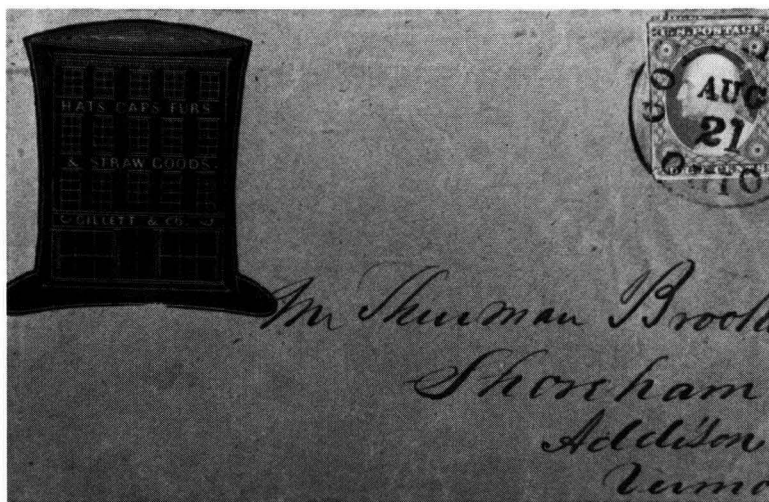 HATS CAPS FURS.
& STRAW GOODS.
GILLETT & CO.
U.S. POSTAGE
AUG
21
Mr Thurman Brook
Shoreham
Addison
Vermo